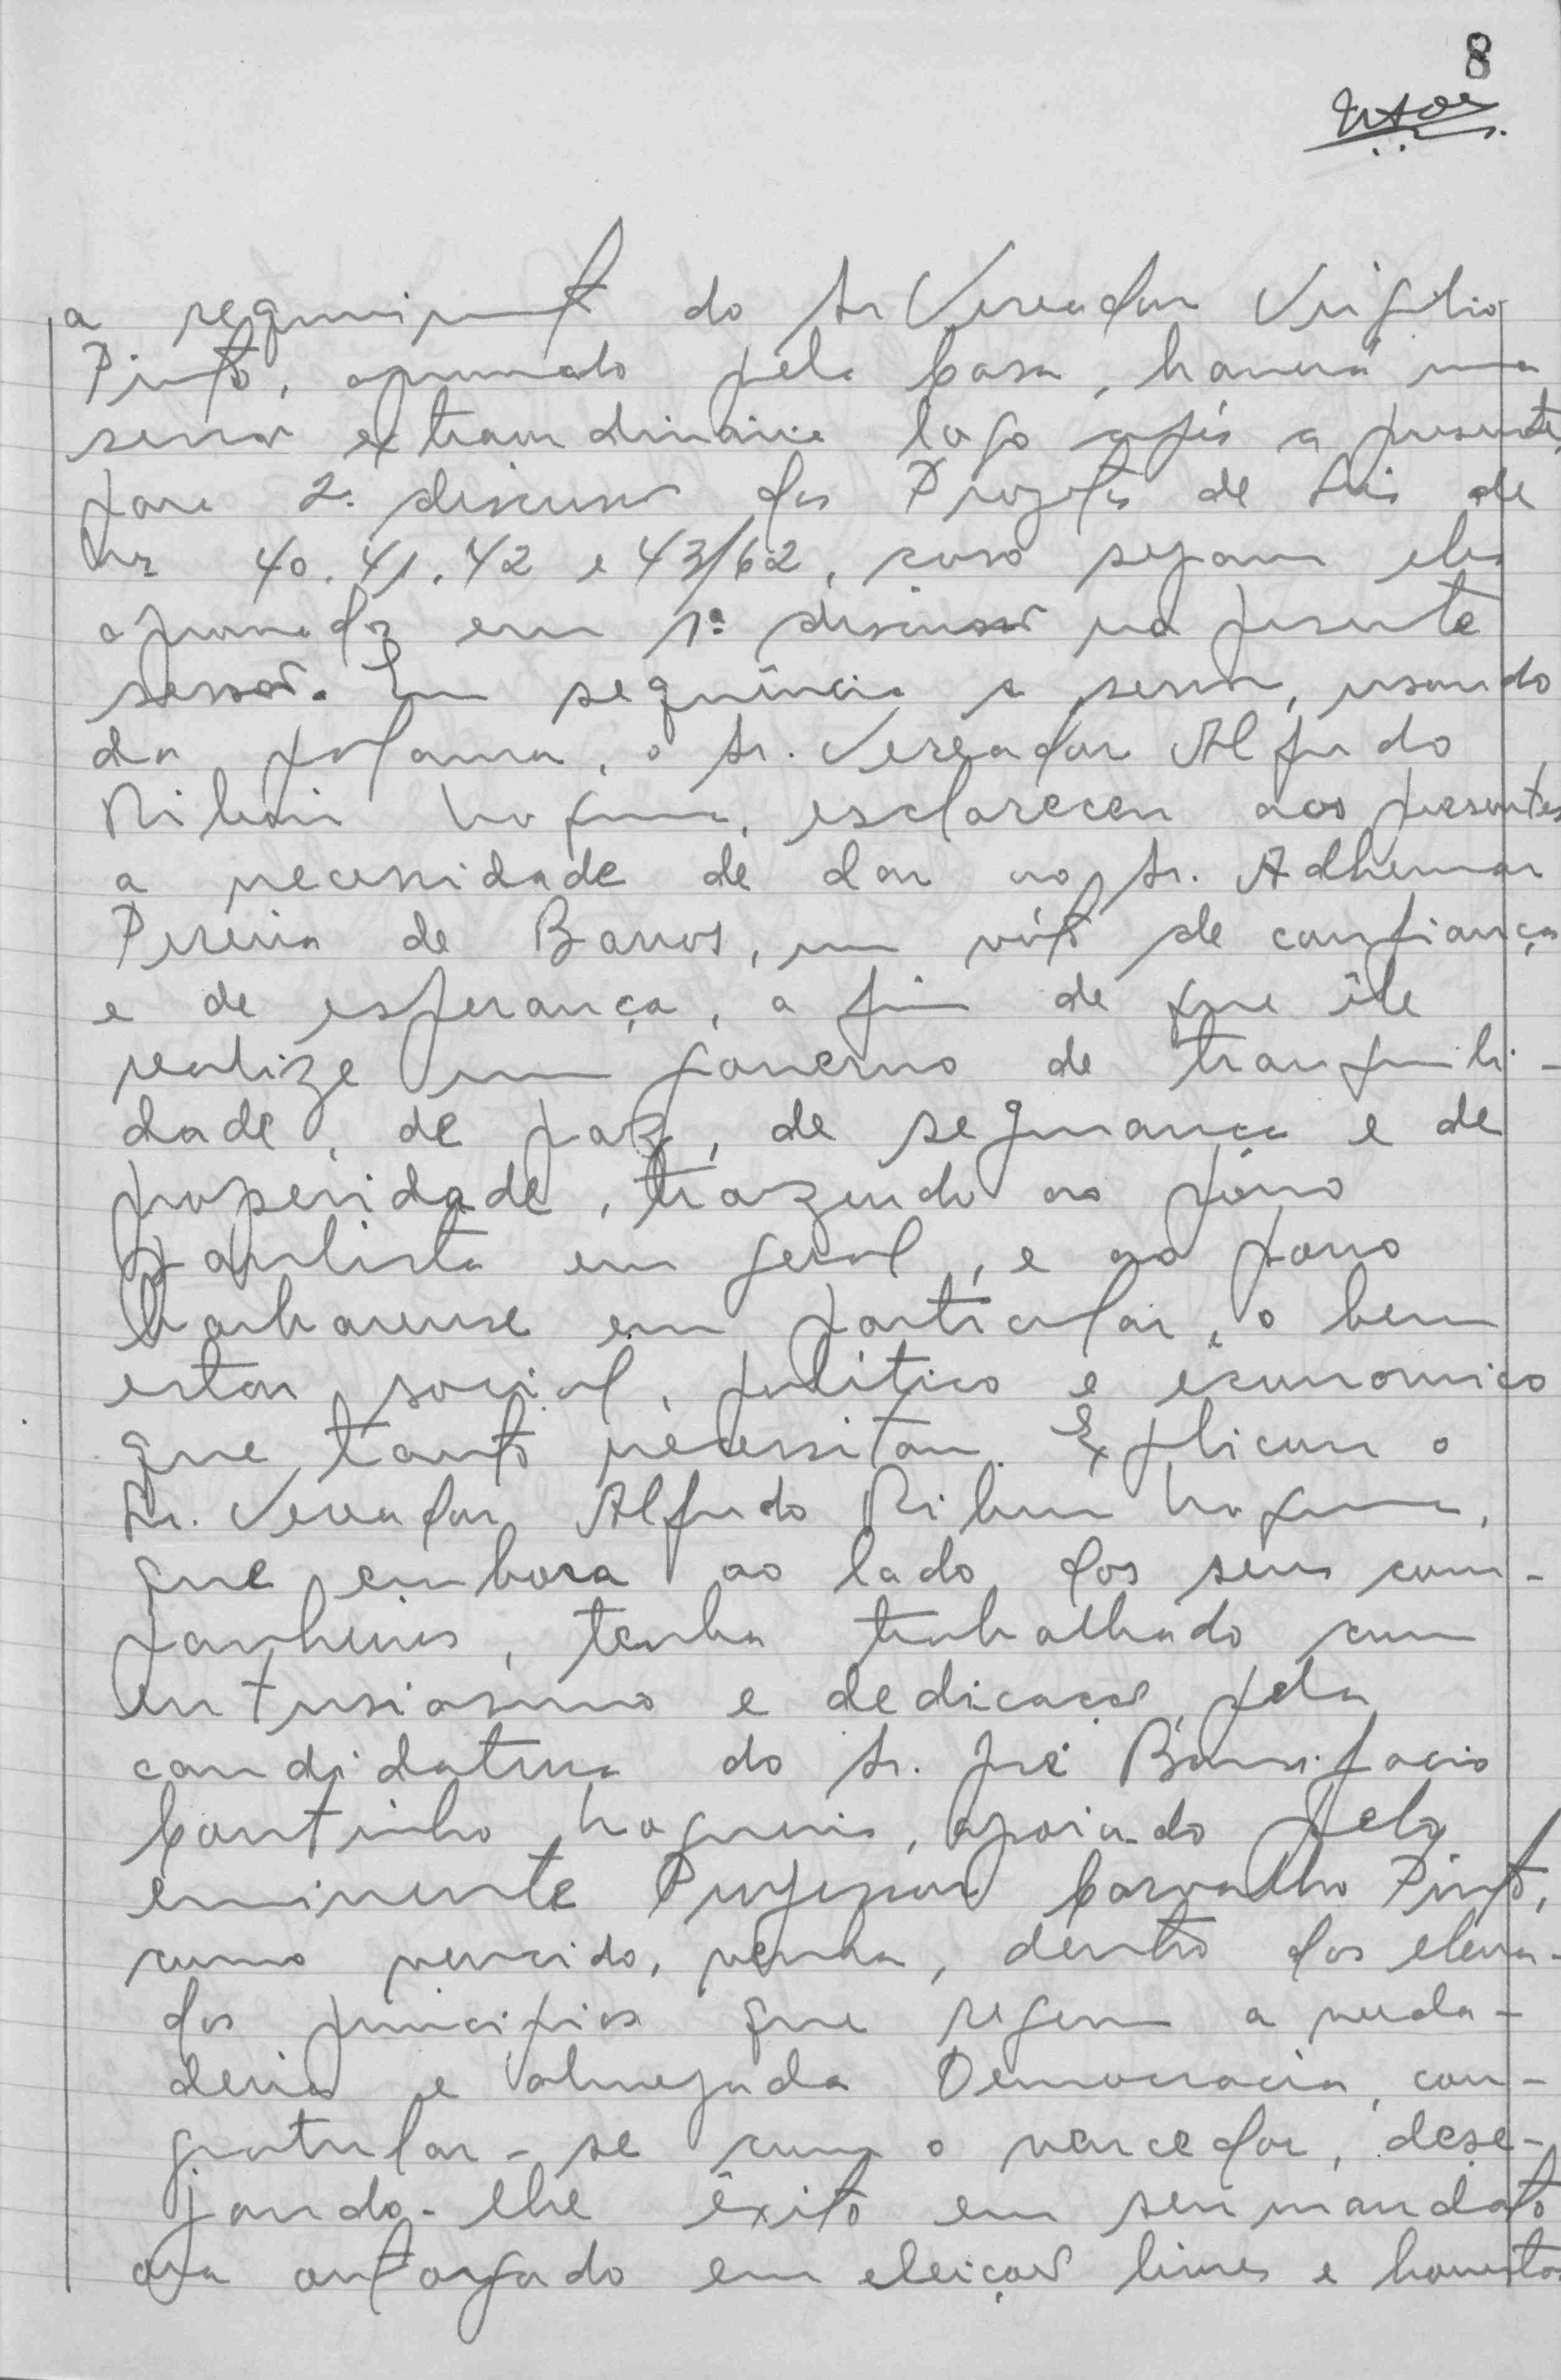 8
a requerimento do Sr Vereador Virgilio
Pinto, aprovado pela Casa, haverá uma
sessão extraordinária logo após a presente,
para 2ª discussão dos Projetos de Leis de
nrs 40. 41. 42 e 43/62, caso sejam eles
aprovados em 1ª discussão na presente
sessão. Em sequência a sessão, usando
da palavra, o Sr. Vereador Alfredo
Ribeiro Nogueira, esclareceu aos presentes
a necessidade de dar ao Sr. Adhemar
Pereira de Barros, um vóto de confiança
e de esperança, a fim de que êle
realize um governo de tranquili-
dade, de paz, de segurança e de
properidade, trazendo ao povo
paulista em geral, e ao povo
barbarense em particular, o bem
estar social, político e economico
que tanto necessitam. Explicou o
Sr. Vereador Alfredo Ribeiro Nogueira,
que embora ao lado dos seus com-
panheiros, tenha trabalhado com
entusiasmo e dedicação pela
candidatura do Sr. José Bonifacio
Coutinho Nogueira, apoiado pelo
eminente Professor Carvalho Pinto,
como vencido, venha, dentro dos eleva-
dos principios que regem a verda-
deira e almejada Democracia, con-
gratular-se com o vencedor, dese-
jando-lhe êxito em seu mandato
ora outorgado em eleição livres e honestas